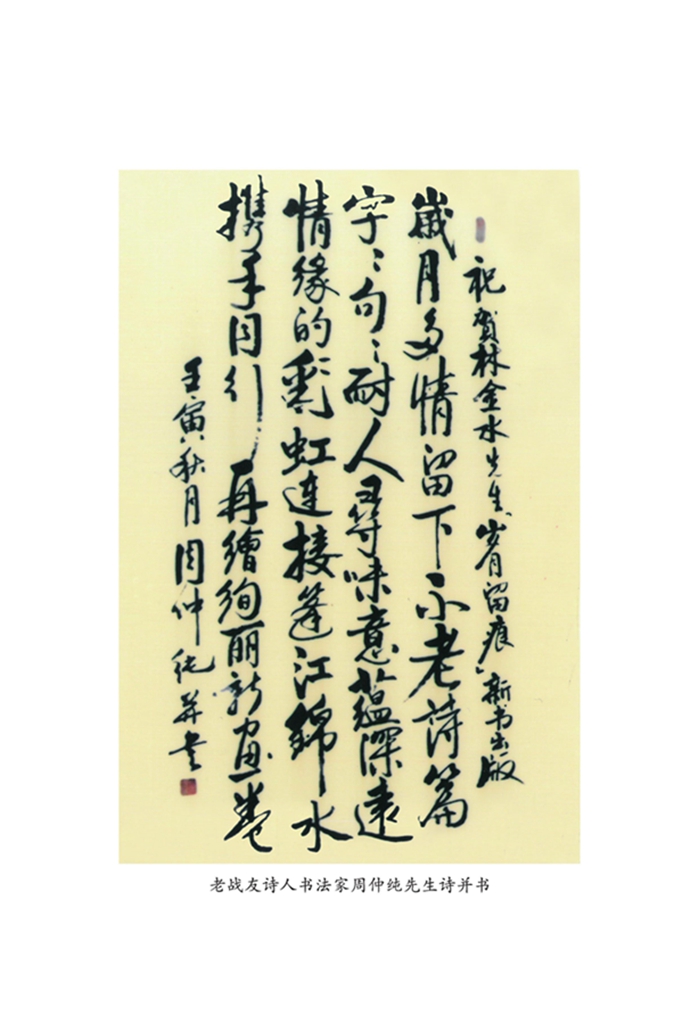 祝贺林金水先生「岁月留痕」新书出版
歲月多情留下不老诗篇
字〻句〻耐人寻味意蕴深遠
情缘的彩虹连接篷江锦水
携手同行再繪绚丽新画卷
壬寅秋月周仲纯并书
老战友诗人书法家周仲纯先生诗并书